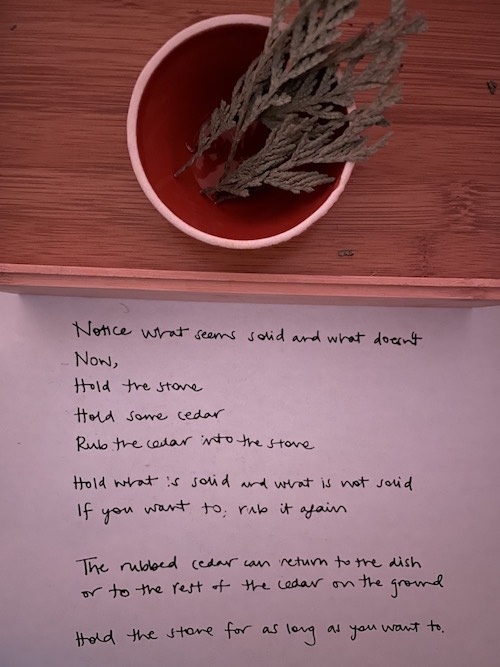 Notice what seems solid and what doesn't
Now,
Hold the stone
Hold some cedar
Rub the cedar into the stone
Hold what is solid and what is not solid
If you want to, rub it again
The rubbed cedar can return to the dish
or to the rest of the cedar on the ground
Hold the stone for as long as you want to.